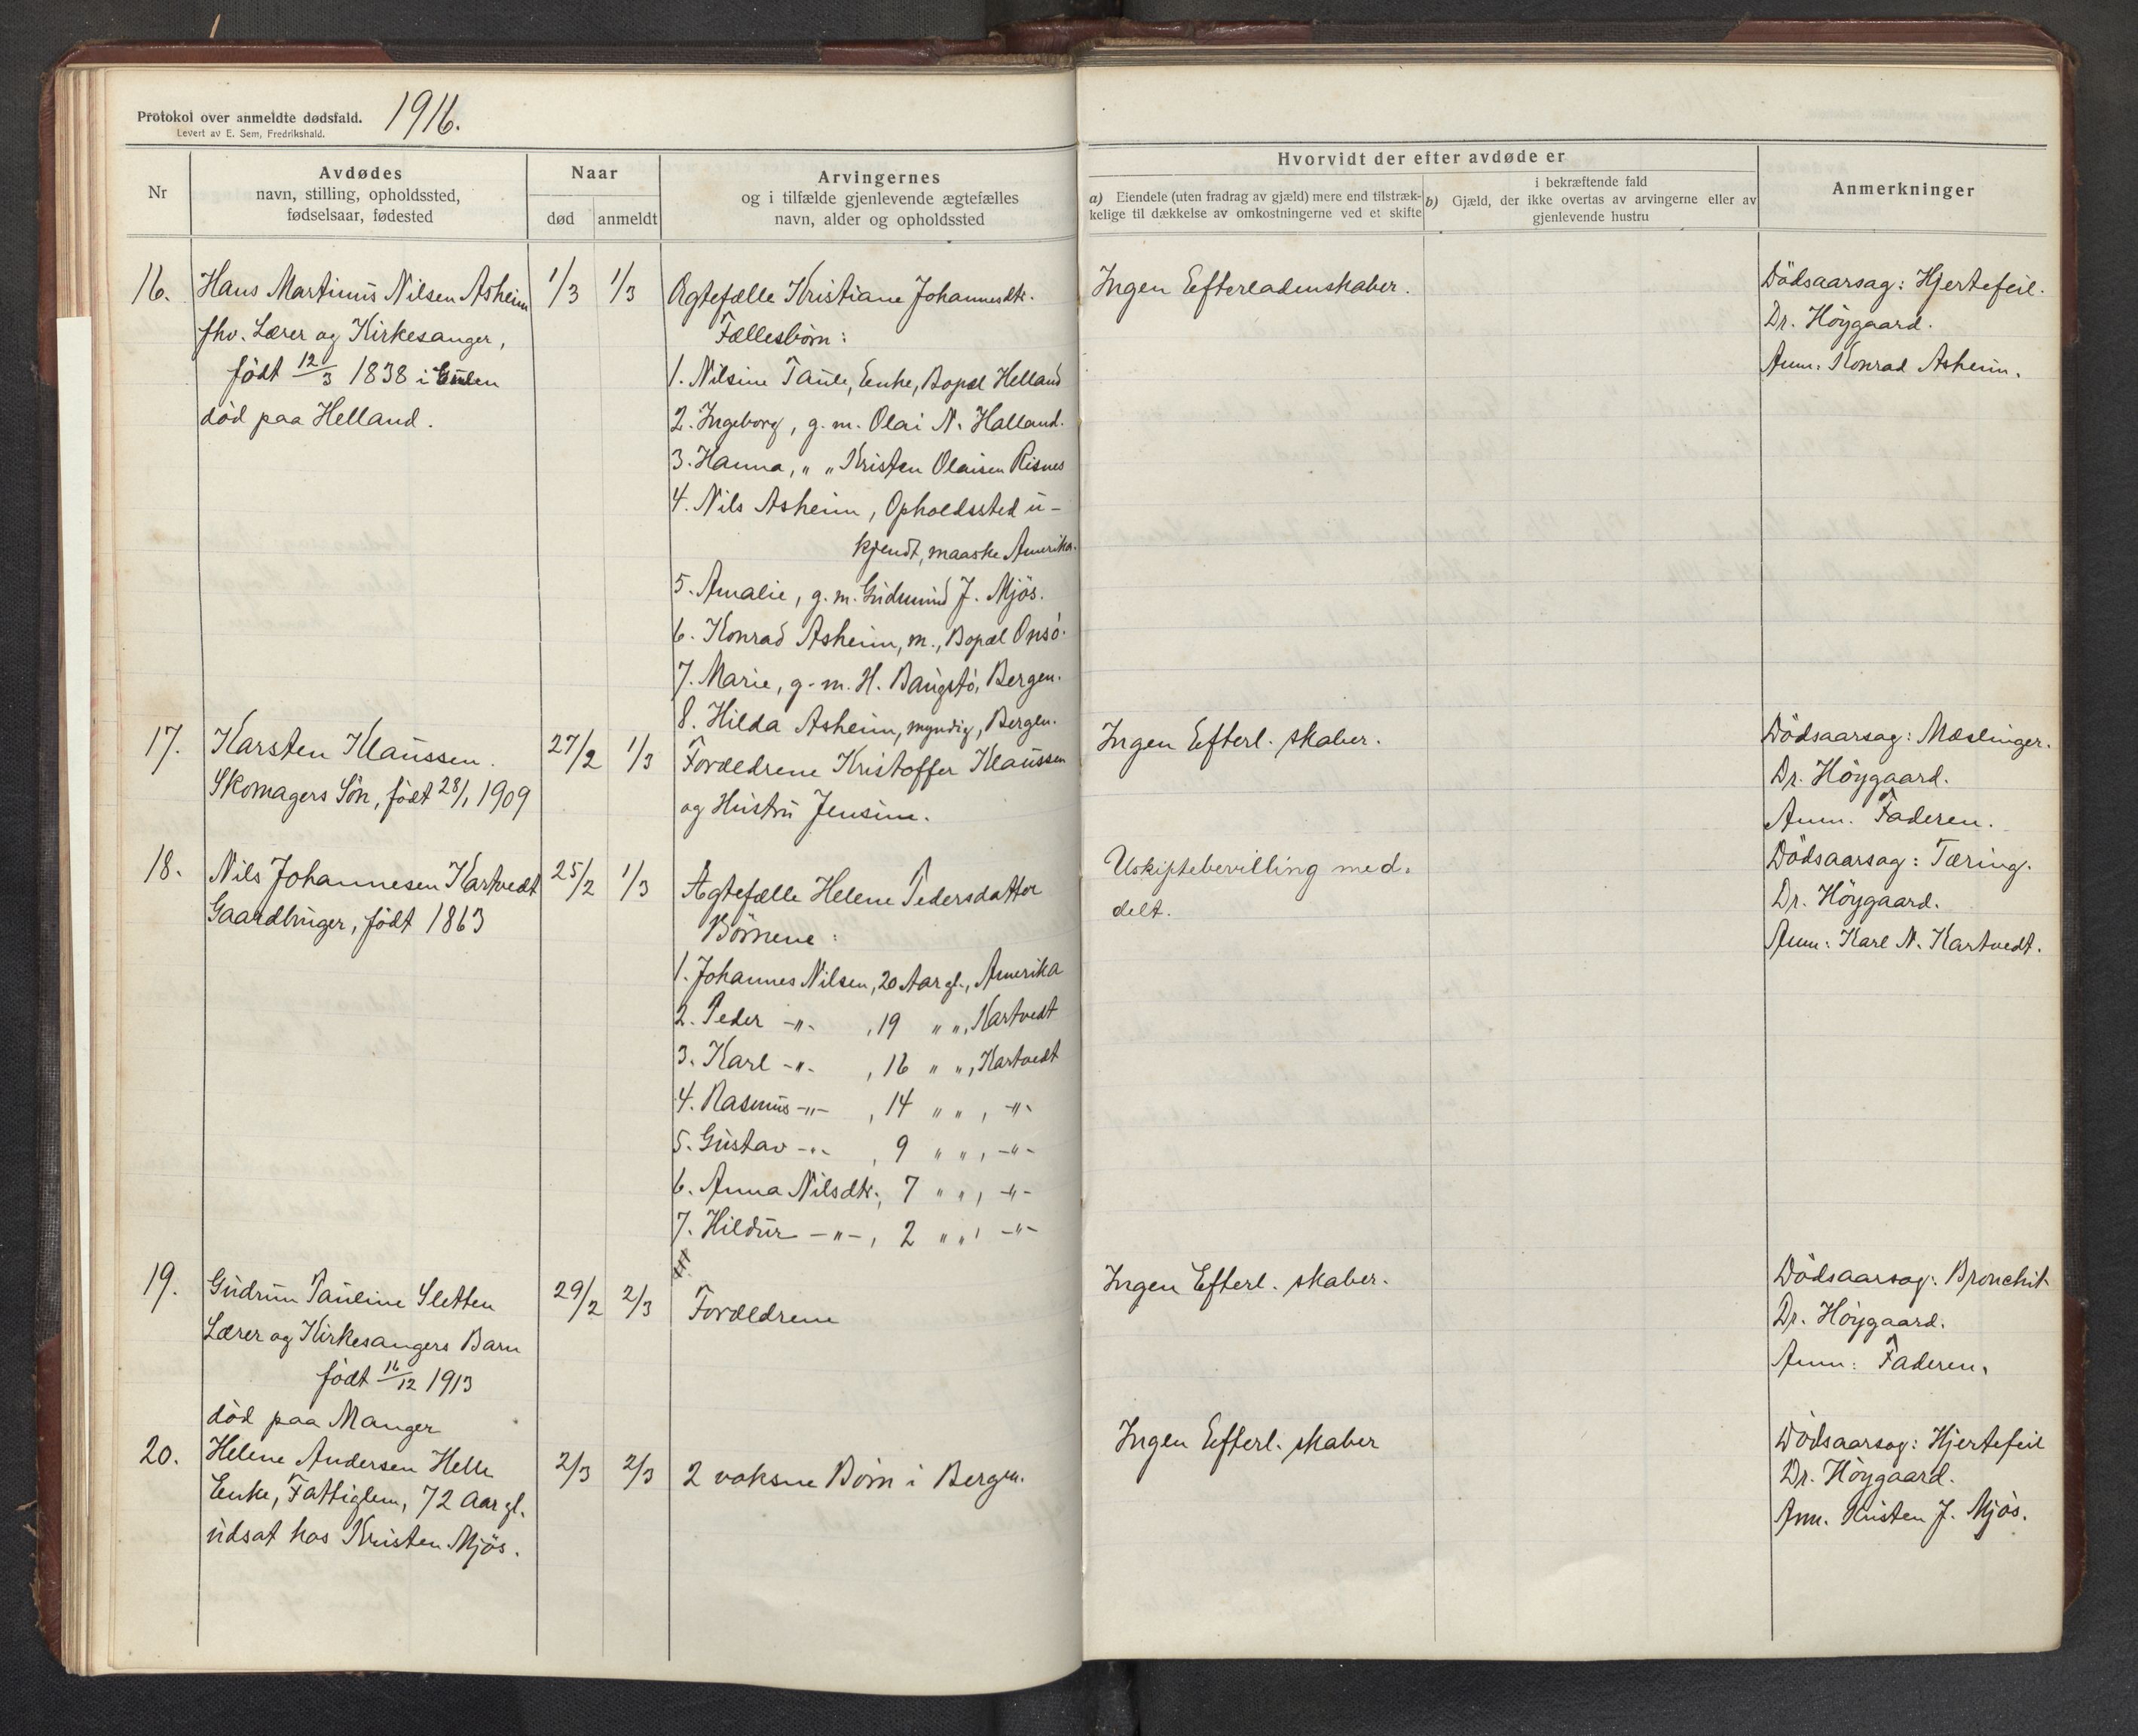 Protokol over anmeldte dødsfald. 1916.
Levert av E. Sem, Fredrikshald.
Nr
Avdødes
navn, stilling, opholdssted,
fødselsaar, fødested
Naar
død
anmeldt
Arvingernes
og i tilfælde gjenlevende ægtefælles
navn, alder og opholdssted
Hvorvidt der efter avdøde er
a) Eiendele (uten fradrag av gjæld) mere end tilstræk-
kelige til dækkelse av omkostningerne ved et skifte
i bekræftende fald
b) Gjæld, der ikke overtas av arvingerne eller av
gjenlevende hustru
Anmerkninger
16.
Hans Martinus Nilsen Asheim
fhv. Lærer og Kirkesanger,
født 12/3 1838 i Gulen
død paa Helland.
1/3
1/3
Ægtefælle Kristiane Johannesdtr.
Fællesbörn:
1. Nilsine Taule, Enke, Bopæl Helland
2. Ingeborg, g. m. Olai N. Halland.
3. Hanna, " " Kristen Olaisen Risnes
4. Nils Asheim, Opholdssted u-
kjendt, maaske Amerika.
5. Amalie, g. m. Gudmund J. Mjös.
6. Konrad Asheim, m., Bopæl Onsö.
7. Marie, g. m. H. Baugstö, Bergen.
8. Hilda Asheim, myndig, Bergen.
Ingen Efterladenskaber.
Dödsaarsag: Hjertefeil.
Dr. Höygaard.
Anm: Konrad Asheim.
17.
Karsten Klaussen.
Skomagers Sön, født 28/1 1909
27/2
1/3
Forældrene Kristoffer Klaussen
og Hustru Jensine.
Ingen Efterl. skaber.
Dödsaarsag: Mæslinger.
Dr. Höygaard.
Anm. Faderen.
18.
Nils Johannesen Kartvedt
Gaardbruger, født 1863
25/2
1/3
Ægtefælle Helene Pedersdatter
Börnene:
1. Johannes Nilsen, 20 Aar gl., Amerika
2. Peder -"- , 19 " ", Kartvedt
3. Karl -"- , 16 " ", Kartvedt
4. Rasmus -"- , 14 " " , -"-
5. Gustav -"- , 9 " " , -"-
6. Anna Nilsdtr., 7 " " , -"-
7. Hildur -"- , 2 " " , -"-
Uskiftebevilling med-
delt.
Dödsaarsag: Tæring.
Dr. Höygaard.
Anm: Karl N. Kartvedt.
19.
Gudrun Pauline Sletten
Lærer og Kirkesangers Barn
født 16/12 1913
död paa Manger
29/2
2/3
Forældrene
Ingen Efterl. skaber.
Dödsaarsag: Bronchit
Dr. Höygaard.
Anm: Faderen.
20.
Helene Andersen Helle
Enke, Fattiglem, 72 Aar gl.
udsat hos Kristen Mjös.
2/3
2/3
2 voksne Börn i Bergen.
Ingen Efterl. skaber
Dödsaarsag: Hjertefeil
Dr. Höygaard.
Anm. Kristen J. Mjös.